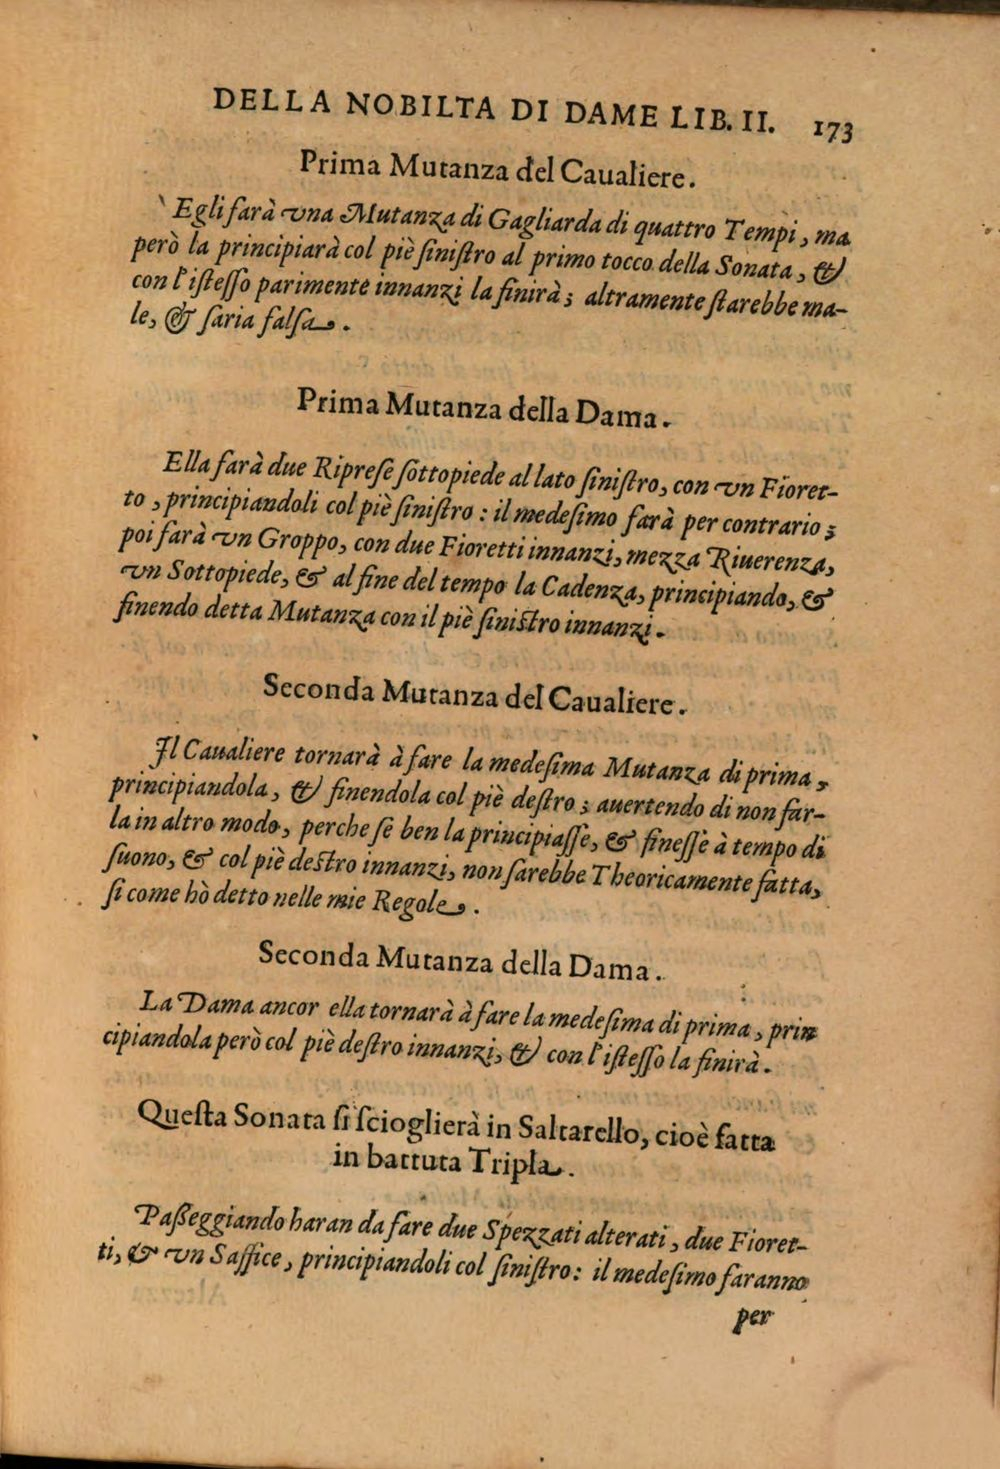 DELLA NOBILTA DI DAME LIB. II. 173
Prima Mutanza del Caualiere.
Egli farà vna Mutanza di Gagliarda di quattro Tempi, ma
però la principiarà col piè ſiniſtro al primo tocco della Sonata, &
con l'iſteſſo parimente innanzi la finirà; altramente ſtarebbe ma-
le, & ſaria falſa.
Prima Mutanza della Dama.
Ella farà due Ripreſe ſottopiede al lato ſiniſtro, con vn Fioret-
to, principiandoli col piè ſiniſtro: il medeſimo farà per contrario;
poi farà vn Groppo, con due Fioretti innanzi, mezza Riuerenza,
vn Sottopiede, & al fine del tempo la Cadenza, principiando, &
finendo detta Mutanza con il piè ſiniſtro innanzi.
Seconda Mutanza del Caualiere.
Il Caualiere tornarà à fare la medeſima Mutanza di prima,
principiandola, & finendola col piè deſtro; auertendo di non far-
la in altro modo, perche ſe ben la principiaſſe, & fineſſe à tempo di
ſuono, & col piè deſtro innanzi, non ſarebbe Theoricamente fatta,
ſi come hò detto nelle mie Regole.
Seconda Mutanza della Dama.
La Dama ancor ella tornarà à fare la medeſima di prima, prin
cipiandola però col piè deſtro innanzi, & con l'iſteſſo la finirà.
Queſta Sonata ſi ſcioglierà in Saltarello, cioè fatta
in battuta Tripla.
Paſſeggiando haran da fare due Spezzati alterati, due Fioret-
ti, & vn Saffice, principiandoli col ſiniſtro: il medeſimo faranno
per